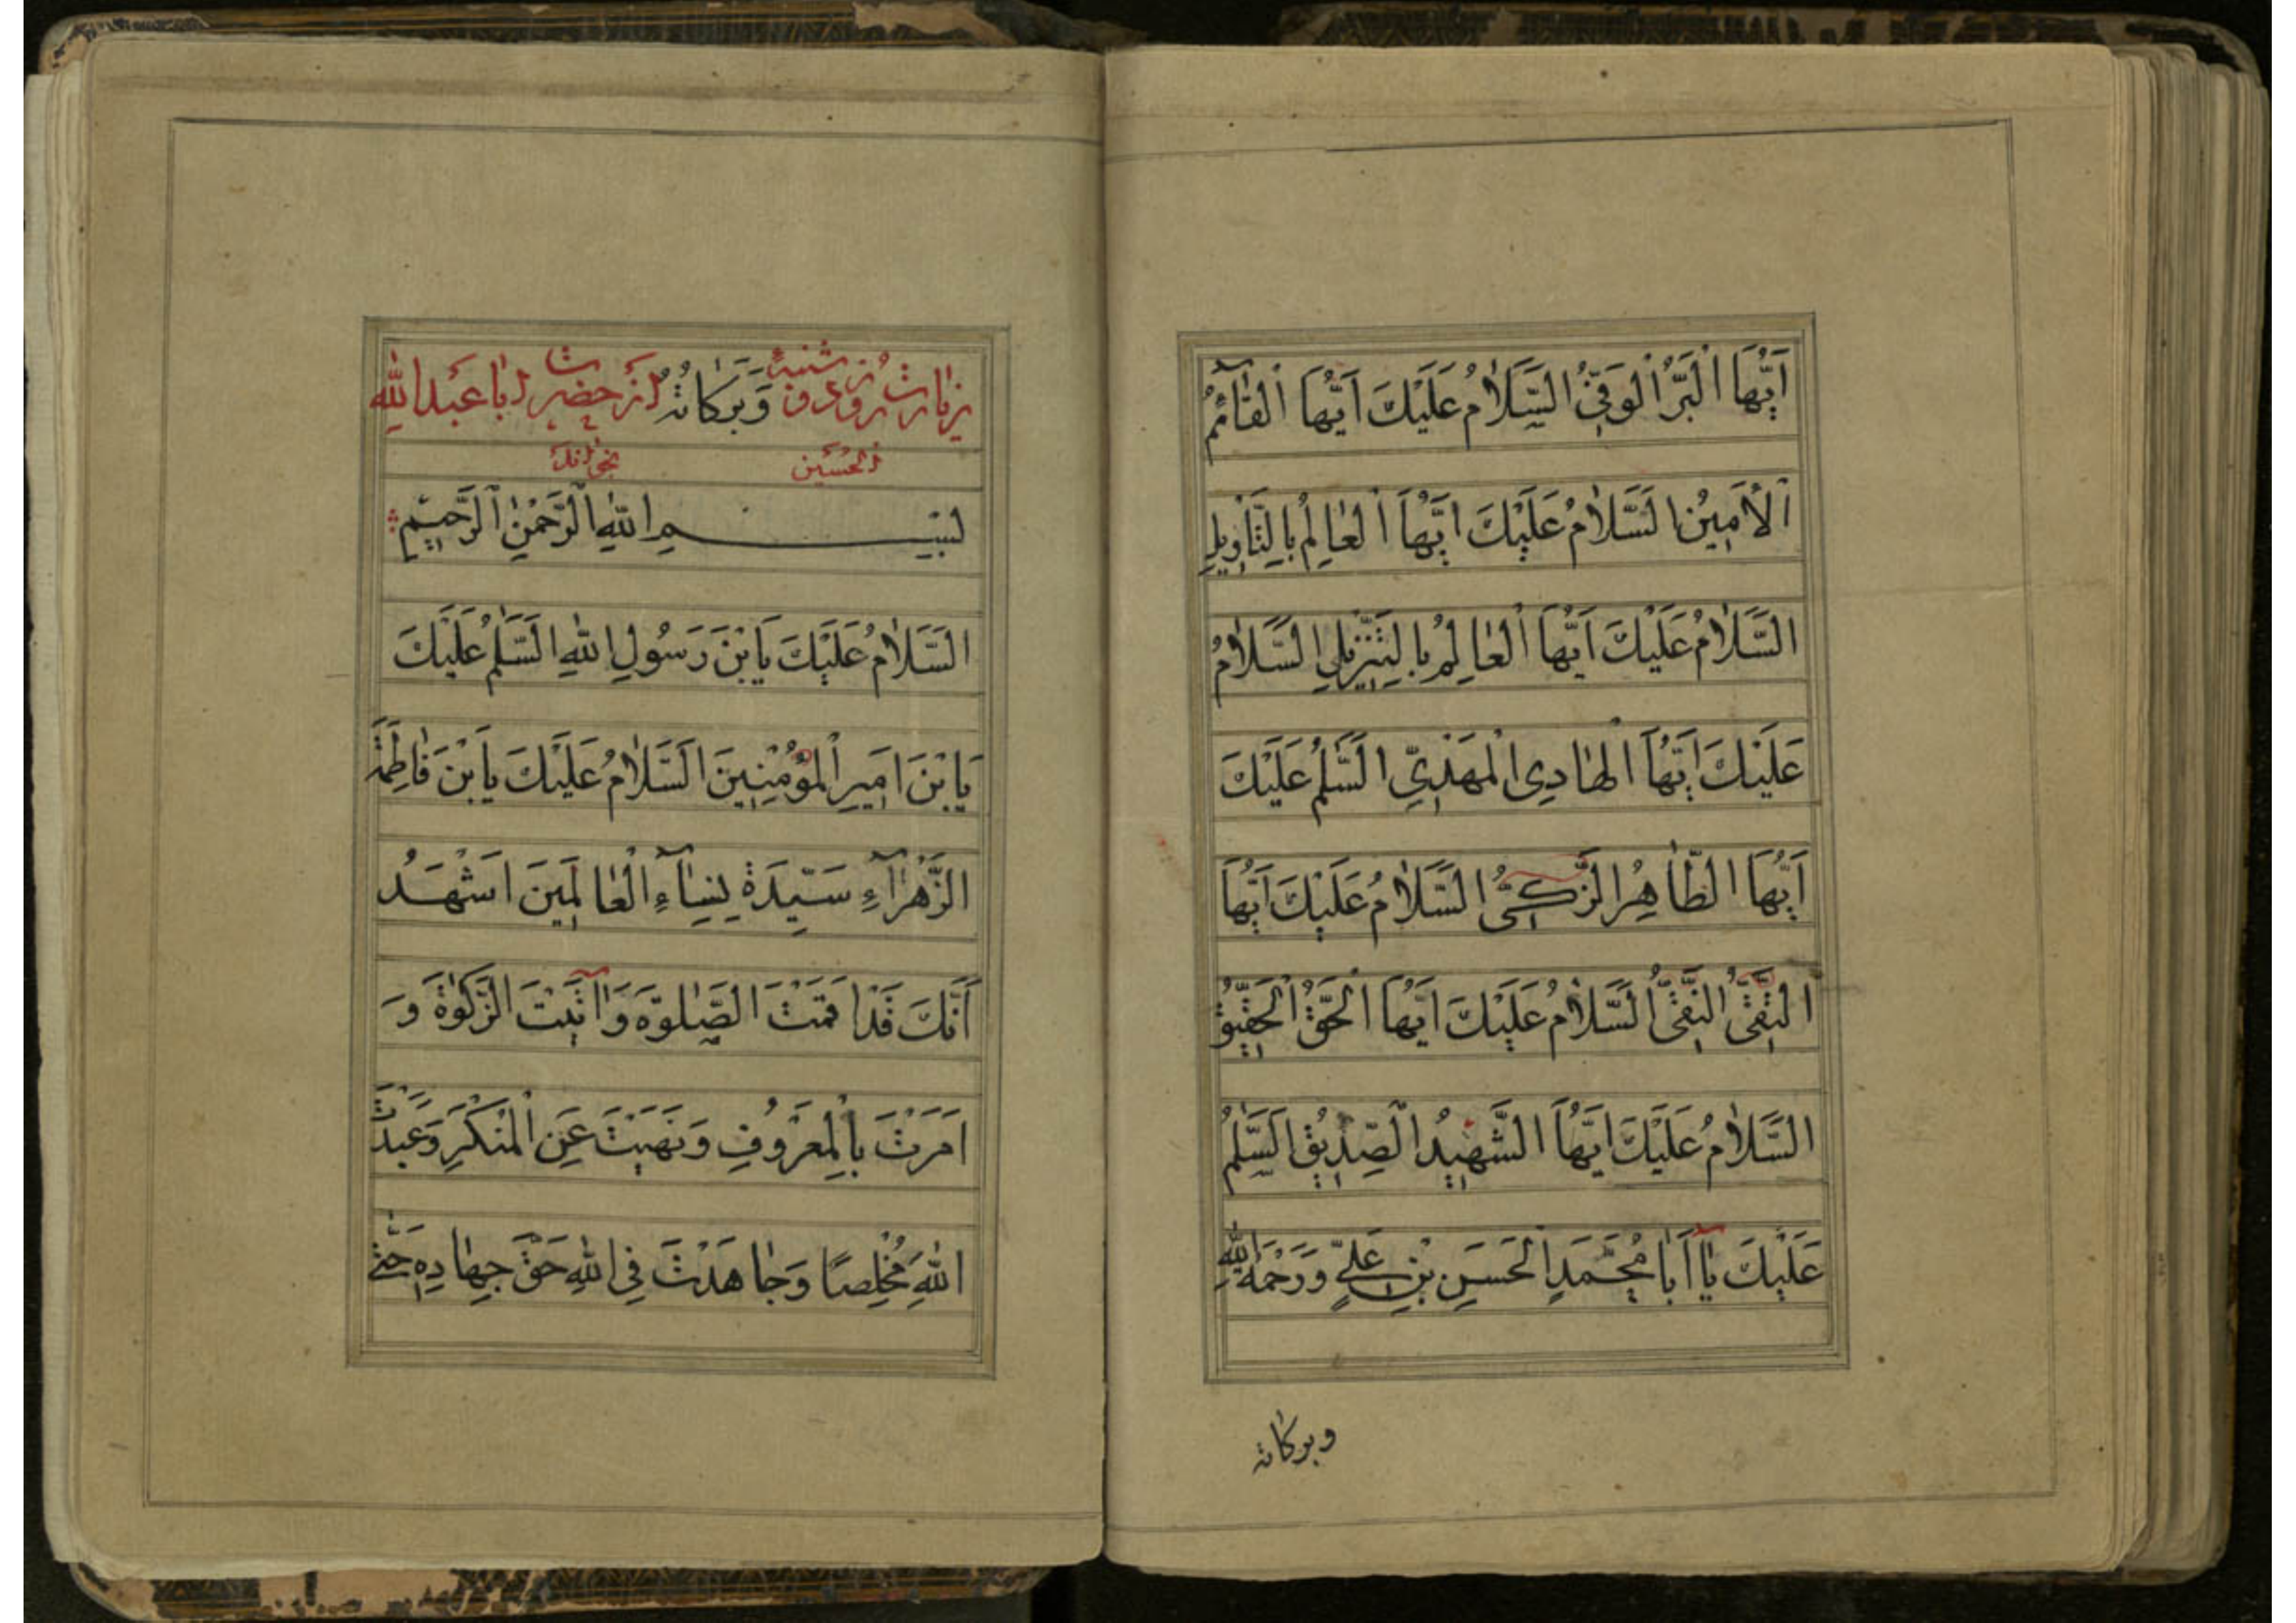 اَيُّهَا الْبَرُّ الْوَفِيُّ السَّلَامُ عَلَيْكَ اَيُّهَا الْقَآئِمُ
الْاَمِينُ السَّلَامُ عَلَيْكَ اَيُّهَا الْعَالِمُ بِالتَّاْوِيلِ
السَّلَامُ عَلَيْكَ اَيُّهَا الْعَالِمُ بِالتَّنْزِيلِ السَّلَامُ
عَلَيْكَ اَيُّهَا الْهَادِي الْمَهْدِيّ السَّلٰمُ عَلَيْكَ
اَيُّهَا الطَّاهِرُ الزَّكِيُّ السَّلَامُ عَلَيْكَ اَيُّهَا
التَّقِيُّ النَّقِيُّ السَّلَامُ عَلَيْكَ اَيُّهَا الْحَقُّ الْحَقِيقُ
السَّلَامُ عَلَيْكَ اَيُّهَا الشَّهِيدُ الصِّدِّيقُ السَّلٰمُ
عَلَيْكَ يَآ اَبَا مُحَمَّدٍ الْحَسَنِ بْنِ عَلِيٍّ وَرَحْمَةُ اللّٰهِ
وبركاته
زيارت روز شنبه وَبَرَكَاتُهُ از حضرت ابا عبد اللّٰهِ
الحُسَين
بِسْمِ اللّٰهِ الرَّحْمٰنِ الرَّحِيمِ
السَّلَامُ عَلَيْكَ يَا بْنَ رَسُولِ اللّٰهِ السَّلٰمُ عَلَيْكَ
يَا بْنَ اَمِيرِ الْمُؤْمِنِينَ السَّلَامُ عَلَيْكَ يَا بْنَ فَاطِمَةَ
الزَّهْرَآءِ سَيِّدَةِ نِسَآءِ الْعَالَمِينَ اَشْهَدُ
اَنَّكَ قَدْ اَقَمْتَ الصَّلٰوةَ وَاٰتَيْتَ الزَّكٰوةَ وَ
اَمَرْتَ بِالْمَعْرُوفِ وَنَهَيْتَ عَنِ الْمُنْكَرِ وَعَبَدْتَ
اللّٰهَ مُخْلِصًا وَجَاهَدْتَ فِي اللّٰهِ حَقَّ جِهَادِهِ حَتّٰى